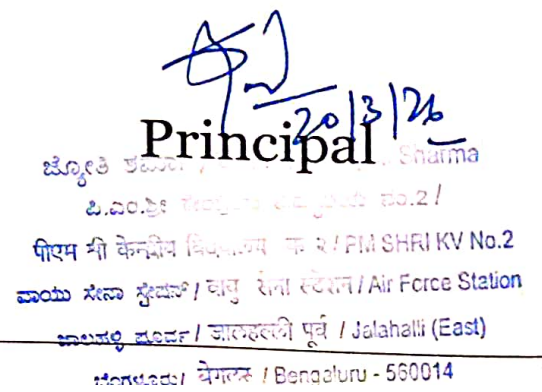 20/3/26
Principal
ಜ್ಯೋತಿ ಶರ್ಮಾ / Sharma
ಪಿ.ಎಂ.ಶ್ರೀ ನಂ.2 /
पीएम श्री केन्द्रीय विद्यालय क्र २ / PM SHRI KV No.2
ವಾಯು ಸೇನಾ ಸ್ಟೇಷನ್ / वायु सेना स्टेशन / Air Force Station
ಜಾಲಹಳ್ಳಿ ಪೂರ್ವ / जालहल्ली पूर्व / Jalahalli (East)
ಬೆಂಗಳೂರು / Bengaluru - 560014